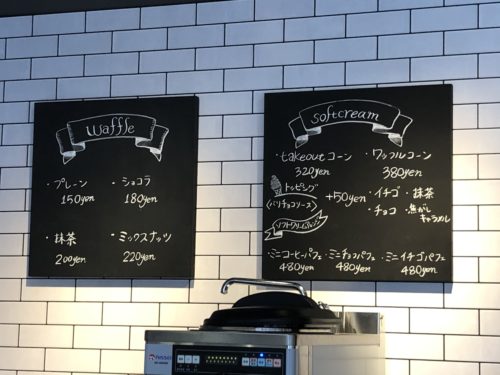 waffle
・プレーン
150yen
・ショコラ
180yen
・抹茶
200yen
・ミックスナッツ
220yen
softcream
・takeoutコーン
320yen
・ワッフルコーン
380yen
トッピング
〈パリチョコソース〉
+50yen
・イチゴ・抹茶
・チョコ・焦がし
キャラメル
・ミニコーヒーパフェ
480yen
・ミニチョコパフェ
480yen
・ミニイチゴパフェ
480yen
nissei